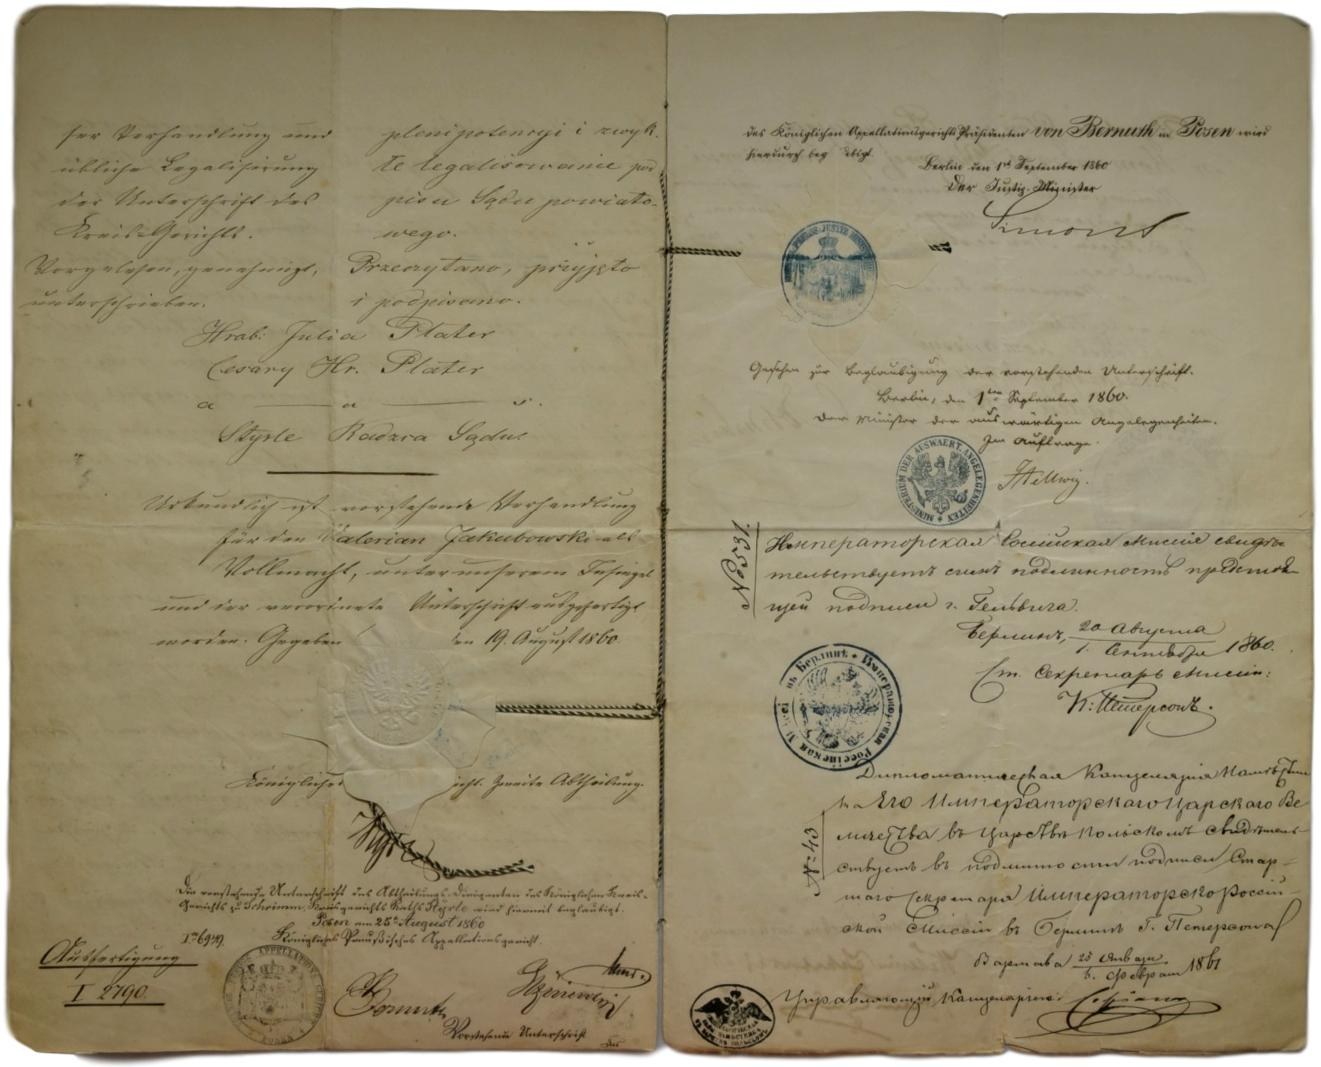 ser Verhandlung und
übliche Legalisirung
der Unterschrift des
Kreis-Gerichts.
Vorgelesen, genehmigt,
unterschrieben.
plenipotencyi i zwyk-
łe legalisowanie pod-
pisu Sądu powiato-
wego.
Przeczytano, przyjęto
i podpisano.
Hrab: Julia Plater
Cesary Hr. Plater
a — u — s.
Styrle Radzca Sądu
Urkundlich ist vorstehende Verhandlung
für den Valerian Jakubowski als
Vollmacht, unter unserem Insiegel
und der verordneten Unterschrift ausgefertigt
worden. Gegeben den 19. August 1860.
Königliches Zweite Abtheilung.
Die vorstehende Unterschrift des Abtheilungs-Dirigenten des Königlichen Kreis-
Gerichts zu Schrimm, Kreisgerichts Raths Styrle wird hiermit beglaubigt.
Posen am 25ten August 1860
Königlich Preußisches Appellationsgericht.
Ausfertigung
I 2790.
Vorstehende Unterschrift
des
des Königlichen Appellationsgerichts Präsidenten von Bernuth in Posen wird
hierdurch beglaubigt.
Berlin den 1ten September 1860
Der Justiz-Minister
Simons
Gesehen zur Beglaubigung der vorstehenden Unterschrift.
Berlin, den 1ten September 1860.
Der Minister der auswärtigen Angelegenheiten.
Im Auftrage.
Hellwig.
MINISTERIUM DER AUSWAERT. ANGELEGENHEITEN
No 531.
Императорская Россійская Миссія свидѣ-
тельствуетъ симъ подлинность предстоя-
щей подписи г. Гельвига.
Берлинъ, 20 Августа / 1. Сентября 1860.
Ст. Секретарь Миссіи:
Петерсонъ.
Императорская Россійская Миссія въ Берлинѣ
No 43
Дипломатическая Канцелярія Намѣстни-
ка Его Императорского Царского Ве-
личества въ Царствѣ Польскомъ свидѣтель-
ствуетъ въ подлинности подписи Стар-
шаго Секретаря Императорско Россій-
ской Миссіи въ Берлинѣ Г. Петерсона
Варшава 25 Января / 6. Февраля 1861
Управляющій Канцеляріею